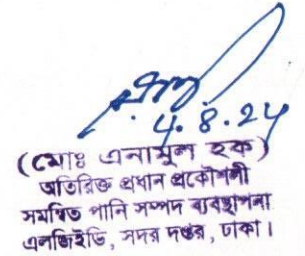 4.8.24
(মোঃ এনামুল হক)
অতিরিক্ত প্রধান প্রকৌশলী
সমন্বিত পানি সম্পদ ব্যবস্থাপনা
এলজিইডি, সদর দপ্তর, ঢাকা।